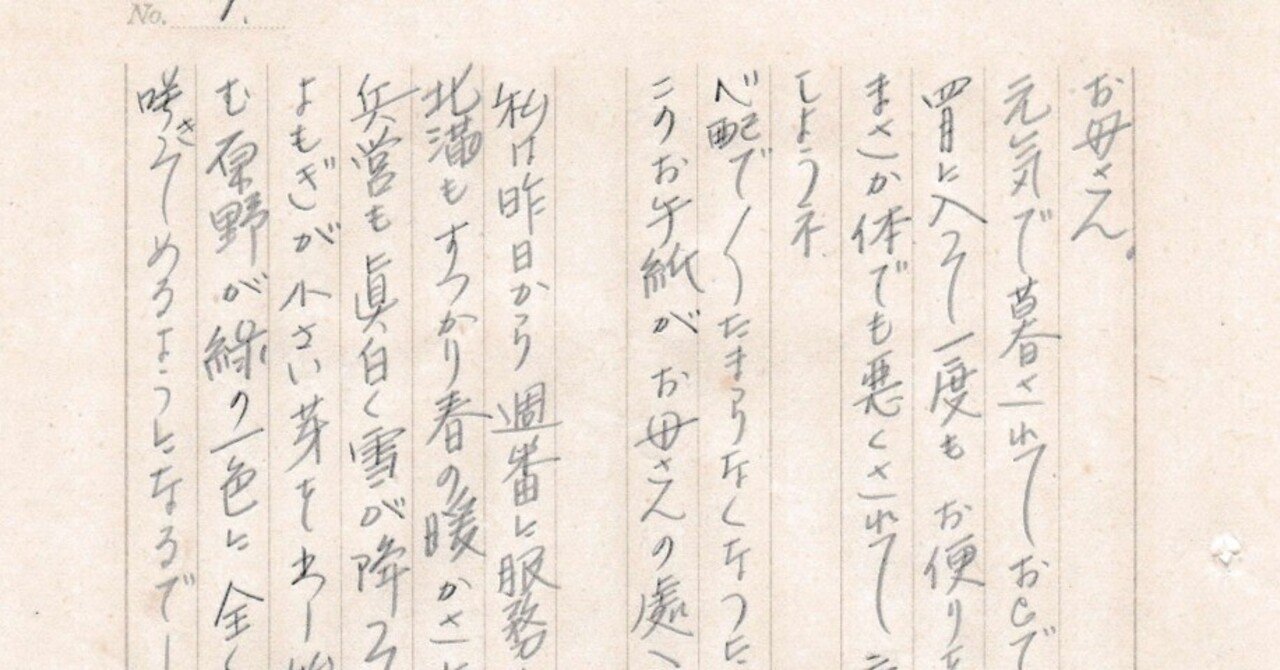 No. 1.
お母さん。
元気で暮されておじで
四月に入って一度もお便りを
まさか体でも悪くされて
しようネ
心配で〱たまらなくなつた
このお手紙がお母さんの處へ
私は昨日から週番に服務
北満もすつかり春の暖かさに
兵営も眞白く雪が降つ
よもぎが小さい芽を出し始
む原野が緑の一色に全く
咲きそめるようになるでし